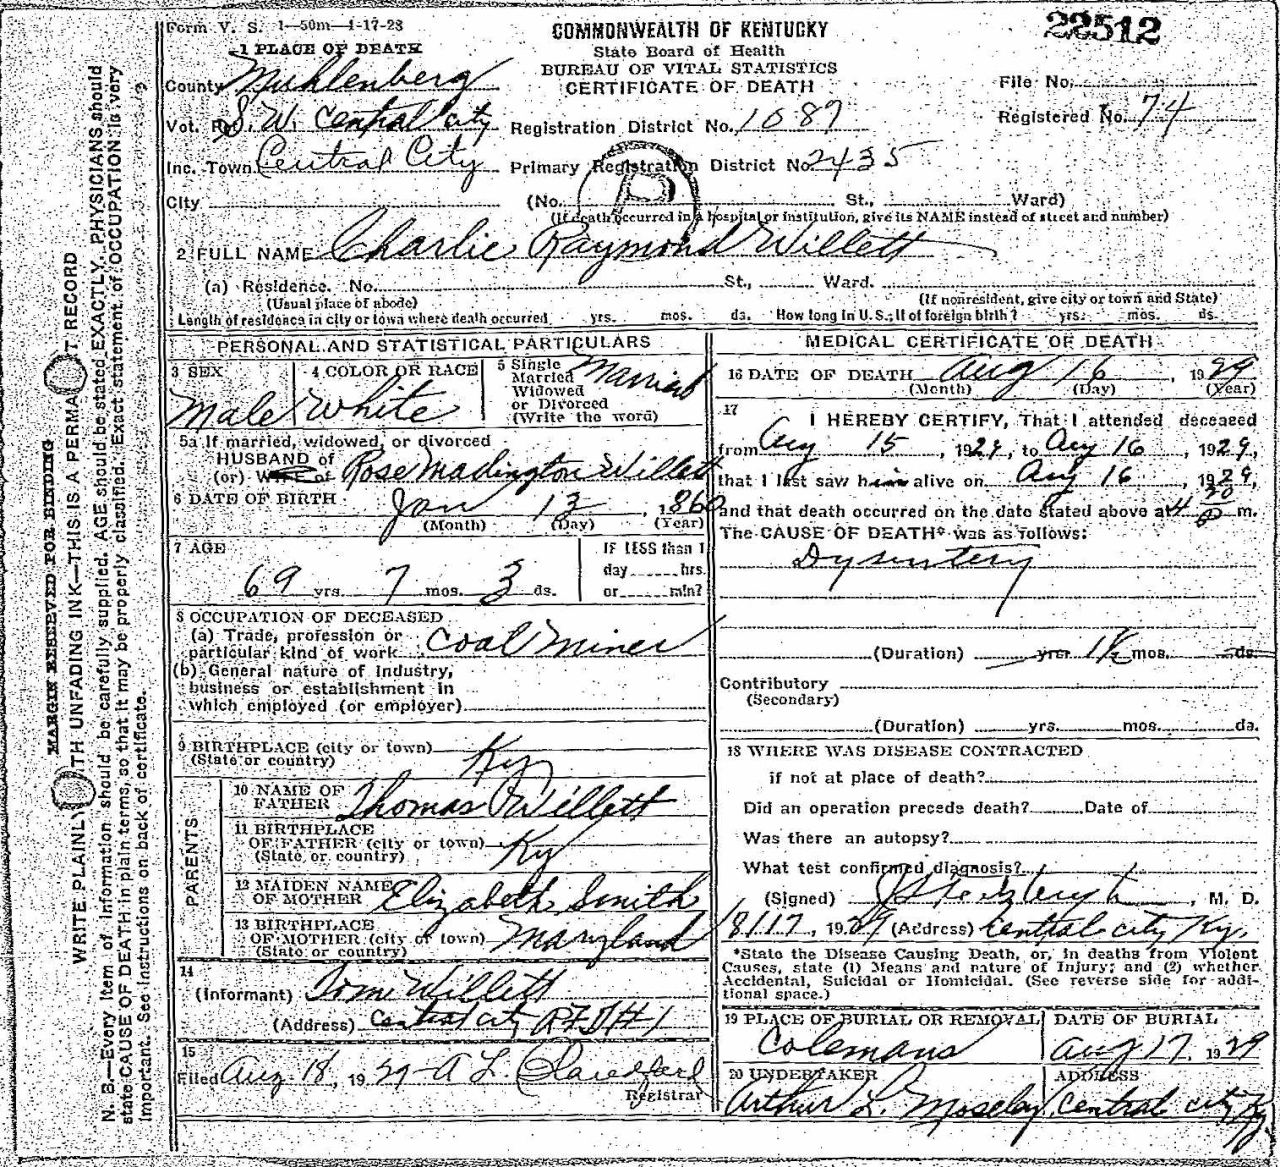 Form V. S. 1-50m-1-17-28
COMMONWEALTH OF KENTUCKY
State Board of Health
BUREAU OF VITAL STATISTICS
CERTIFICATE OF DEATH
22512
1 PLACE OF DEATH
County Muhlenberg
File No.
Vot. Pct. S. W. Central City Registration District No. 1087
Registered No. 74
Inc. Town Central City Primary Registration District No. 2435
City (No. St., Ward)
(If death occurred in a hospital or institution, give its NAME instead of street and number)
2 FULL NAME Charlie Raymond Willett
(a) Residence. No. St., Ward.
(Usual place of abode) (If nonresident, give city or town and State)
Length of residence in city or town where death occurred yrs. mos. ds. How long in U.S., if of foreign birth? yrs. mos. ds.
PERSONAL AND STATISTICAL PARTICULARS
3 SEX Male
4 COLOR OR RACE White
5 Single Married Widowed or Divorced (Write the word) Married
5a If married, widowed, or divorced
HUSBAND of
(or) WIFE of Rose Madington Willett
6 DATE OF BIRTH Jan 13, 1860
(Month) (Day) (Year)
7 AGE
69 yrs. 7 mos. 3 ds.
IF LESS than 1
day hrs.
or min?
8 OCCUPATION OF DECEASED
(a) Trade, profession or
particular kind of work Coal Miner
(b) General nature of industry,
business or establishment in
which employed (or employer)
9 BIRTHPLACE (city or town)
(State or country) Ky
PARENTS
10 NAME OF
FATHER Thomas Willett
11 BIRTHPLACE
OF FATHER (city or town) Ky
(State or country)
12 MAIDEN NAME
OF MOTHER Elizabeth Smith
13 BIRTHPLACE
OF MOTHER (city or town) Maryland
(State or country)
14
(Informant) Tom Willett
(Address) Central City RFD #1
15
Filed Aug. 18, 1929 A L.
Registrar
MEDICAL CERTIFICATE OF DEATH
16 DATE OF DEATH Aug 16, 1929
(Month) (Day) (Year)
17
I HEREBY CERTIFY, That I attended deceased
from Aug 15, 1929, to Aug 16, 1929,
that I last saw him alive on Aug 16, 1929,
and that death occurred on the date stated above at 4 20 P m.
The CAUSE OF DEATH* was as follows:
Dysentery
(Duration) yrs. 1½ mos. ds.
Contributory
(Secondary)
(Duration) yrs. mos. ds.
18 WHERE WAS DISEASE CONTRACTED
if not at place of death?
Did an operation precede death? Date of
Was there an autopsy?
What test confirmed diagnosis?
(Signed) , M. D.
8/17, 1929 (Address) Central City Ky.
*State the Disease Causing Death, or, in deaths from Violent
Causes, state (1) Means and nature of Injury; and (2) whether
Accidental, Suicidal or Homicidal. (See reverse side for addi-
tional space.)
19 PLACE OF BURIAL OR REMOVAL
Colemans
DATE OF BURIAL
Aug 17, 1929
20 UNDERTAKER
Arthur L. Moseley
ADDRESS
Central City Ky
MARGIN RESERVED FOR BINDING
WRITE PLAINLY WITH UNFADING INK—THIS IS A PERMANENT RECORD
N. B.—Every item of information should be carefully supplied. AGE should be stated EXACTLY. PHYSICIANS should
state CAUSE OF DEATH in plain terms, so that it may be properly classified. Exact statement of OCCUPATION is very
important. See instructions on back of certificate.